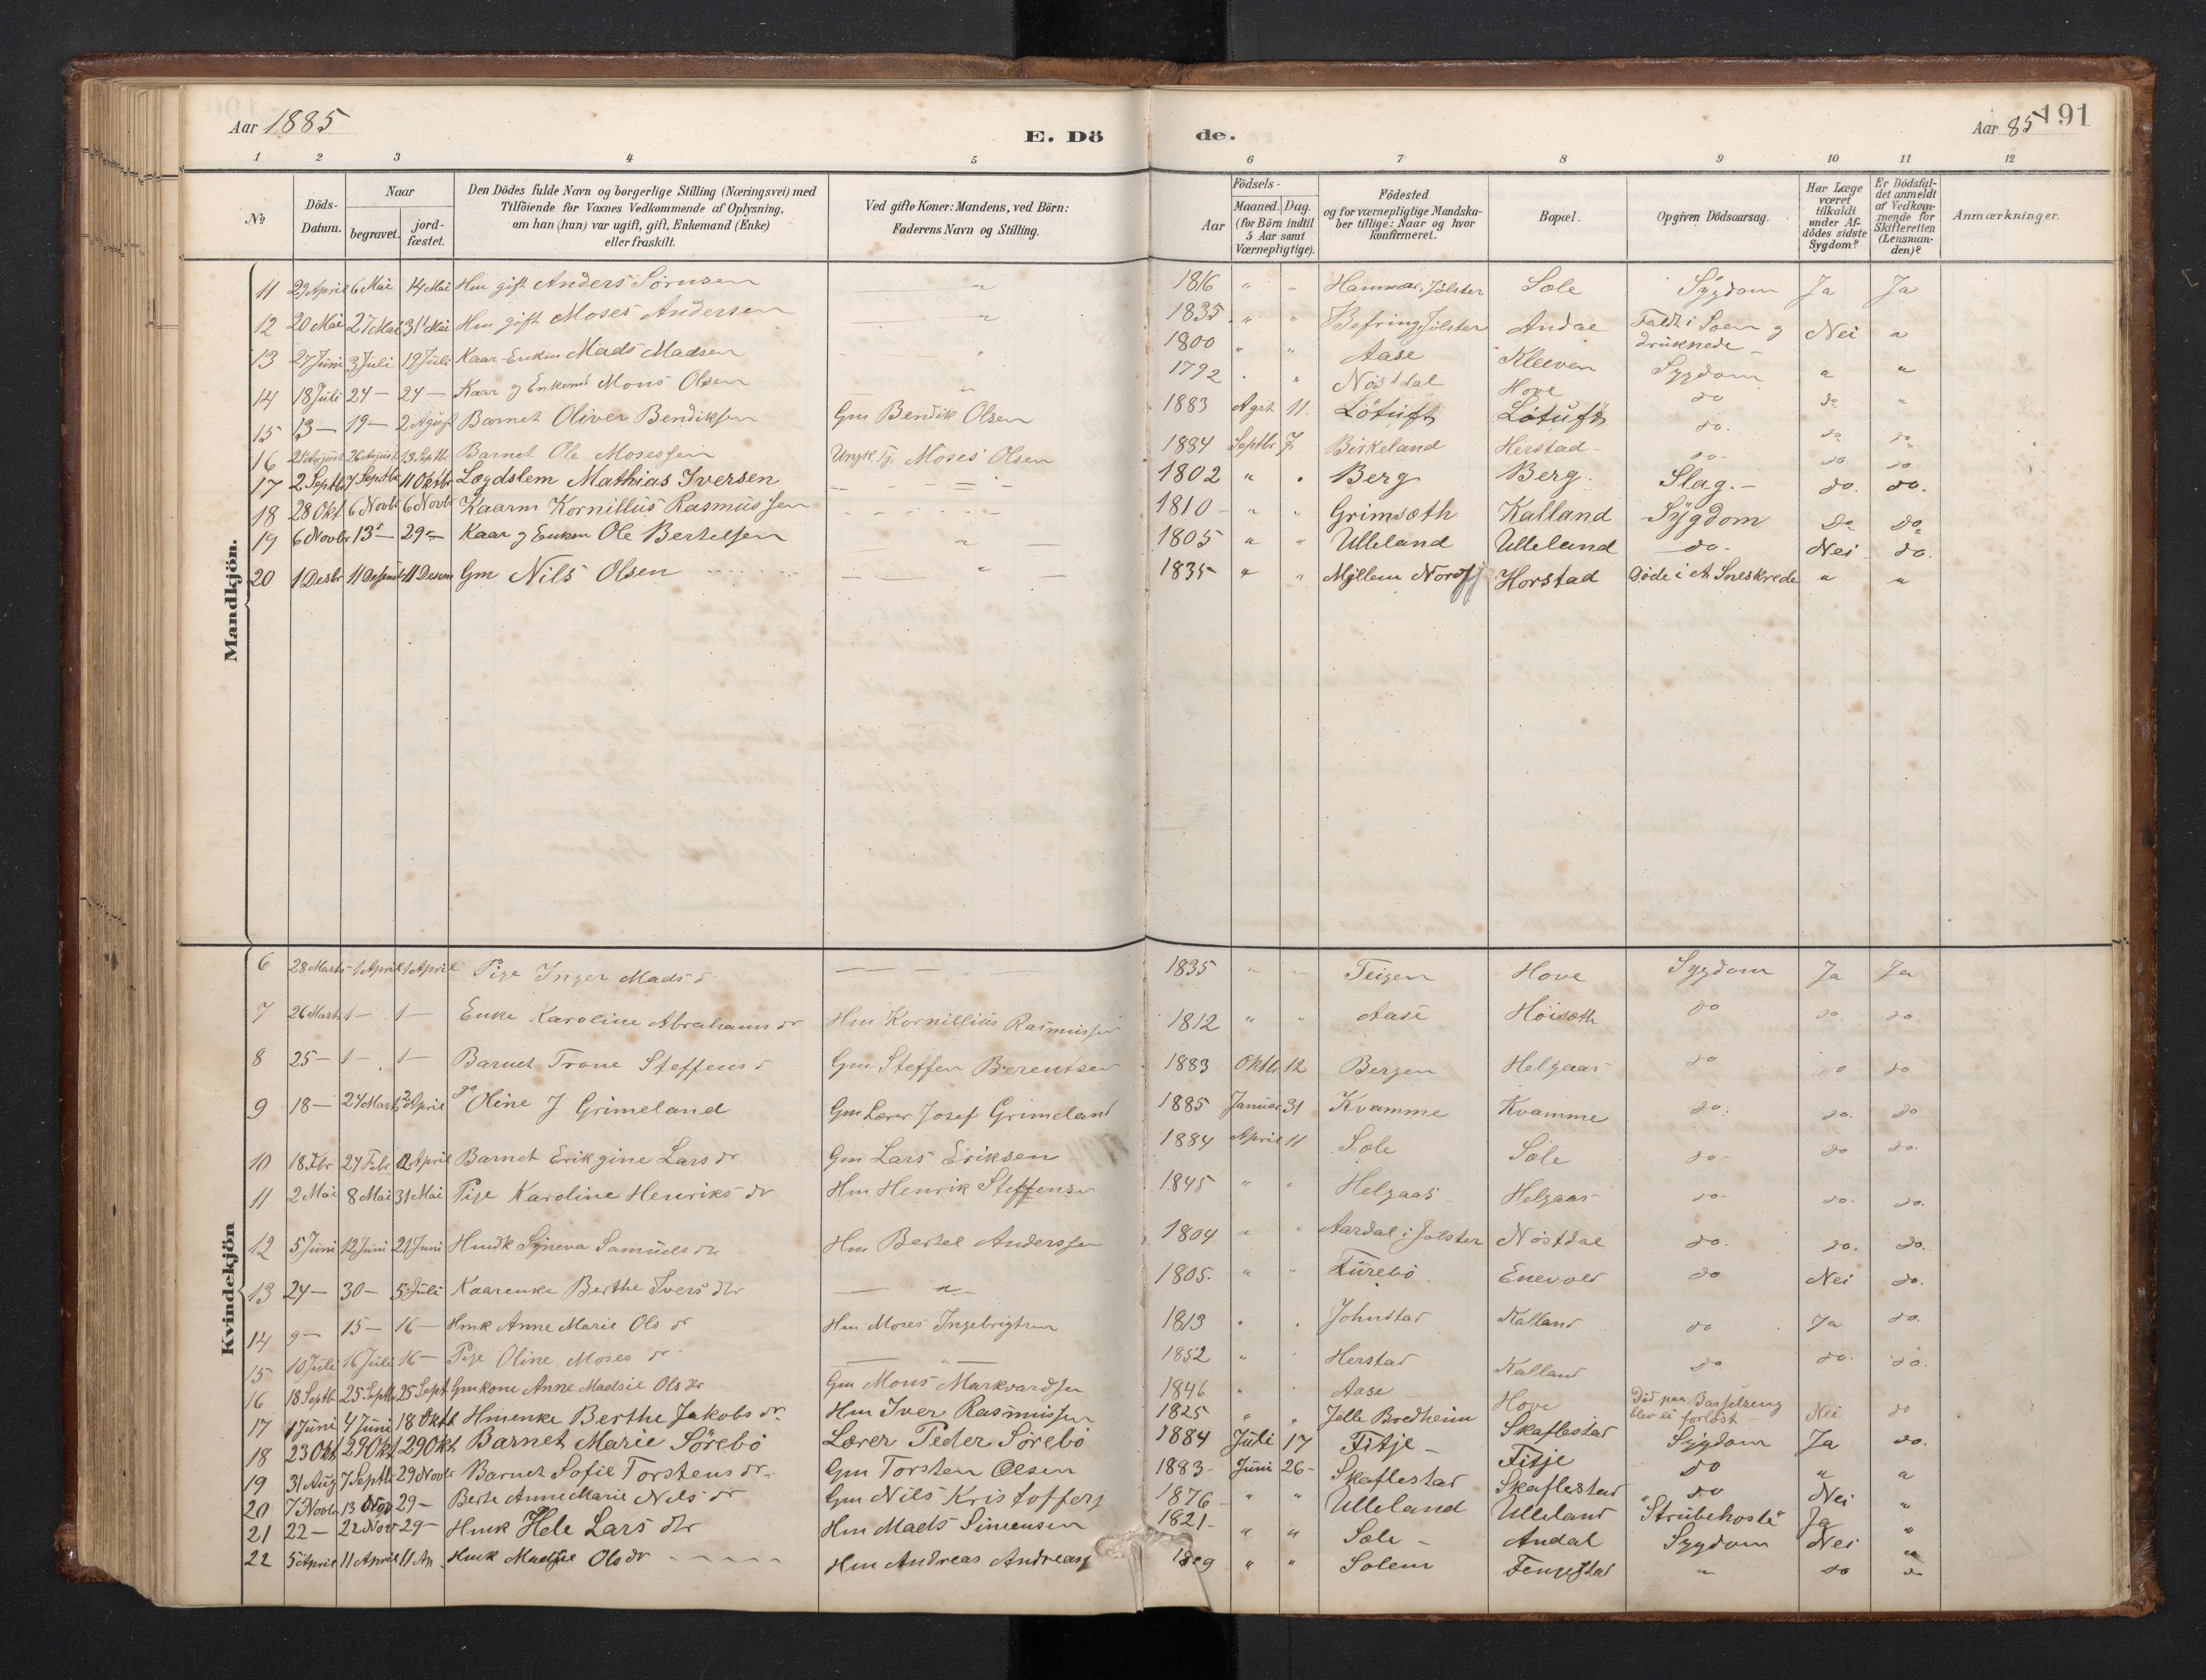 Aar 1885
E. Dö
de.
Aar 85
191
1 2 3 4 5 6 7 8 9 10 11 12
No
Döds-Datum.
Naar
begravet.
jord-fæstet.
Den Dödes fulde Navn og borgerlige Stilling (Næringsvei) med
Tilföiende for Voxnes Vedkommende af Oplysning,
om han (hun) var ugift, gift, Enkemand (Enke)
eller fraskilt.
Ved gifte Koner: Mandens, ved Börn:
Faderens Navn og Stilling.
Födsels-
Aar
Maaned. Dag.
(for Börn indtil
5 Aar samt
Værnepligtige).
Födested
og for værnepligtige Mandska-
ber tillige: Naar og hvor
konfirmeret.
Bopæl.
Opgiven Dödsaarsag.
Har Læge
været
tilkaldt
under Af-
dödes sidste
Sygdom?
Er Dödsfal-
det anmeldt
af Vedkom-
mende for
Skifteretten
(Lensman-
den)?
Anmærkninger.
Mandkjön.
11 29 April 6 Mai 14 Mai Hm gift Anders Sörnsen " 1816 " " Hammer i Jölster Sole Sygdom Ja Ja
12 20 Mai 27 Mai 31 Mai Hm gift Moses Andersen " 1835 " " Befring Jölster Andae Faldt i Soen og druknede Nei "
13 27 Juni 3 Juli 19 Juli Kaar-Enkm Mads Madsen " 1800 " " Aase Kleeven Sygdom " "
14 18 Juli 24 — 24 — Kaar og Enkemd Mons Olsen " 1792 " " Nösdal Hove do do "
15 13 — 19 — 2 August Barnet Oliver Bendiksen Gm Bendik Olsen 1883 Agst 11. Lötuft Lötuft do. do do
16 21 August 26 August 13 Septbr Barnet Ole Mosessen Ungk Tj. Moses Olsen 1884 Septbr 7. Birkeland Herstad do. do. do
17 2 Septbr 7 Septbr 11 Oktbr Lægdslem Mathias Iversen — 1802 " " Berg Berg. Slag. — do. do.
18 28 Okt 6 Novbr 6 Novbr Kaarm Kornillius Rasmussen — 1810 " " Grimsæth Kalland Sygdom Do Do
19 6 Novbr 13 — 29 — Kaar og Enkm Ole Bertelsen " 1805 " " Ulleland Ulleland do. Nei do.
20 1 Desbr 11 Desembr 11 Desem Gm Nils Olsen " 1835 " " Myllem Nordfj Horstad Döde i et Sneskrede " "
Kvindekjön
6 28 Marts 1 April 1 April Pige Inger Mads d — 1835 " " Teigen Hove Sygdom Ja Ja
7 26 Marts 1 — 1 — Enke Karoline Abrahams dr Hm Kornillius Rasmussen 1812 " " Aase Höisæth do do. do
8 25 — 1 — 1 — Barnet Trone Steffens d Gm Steffen Berentsen 1883 Oktb 12 Bergen Helgaas do do do
9 18 — 24 Marts 2 April do Oline J Grimeland Gm Lærer Josef Grimeland 1885 Januar 31 Kvamme Kvamme do. do. do
10 18 Fbr 24 Febr 2 April Barnet Erikgine Lars dr Gm Lars Eriksen 1884 April 11 Sole Sole do. do do.
11 2 Mai 8 Mai 31 Mai Pige Karoline Henriks dr Hm Henrik Steffensen 1845 " " Helgaas Helgaas do. do. do.
12 5 Juni 12 Juni 21 Juni Hmdk Syneva Samuels dtr Hm Bertel Anderssen 1804 " " Aardal i Jölster Nöstdal do. do. do.
13 24 — 30 — 5 Juli Kaarenke Berthe Ivers dtr — 1805. " " Turebö Enevold do Nei do.
14 9 — 15 — 16 — Hmk Anne Marie Ols dr Hm Moses Ingebrigtsen 1813 " " Johnstad Kalland do Ja do.
15 10 Juli 16 Juli 16 — Pige Oline Moses dr — 1852 " " Herstad Kalland do do. do.
16 18 Septb 25 Septb 25 Sept Gmkone Anne Madsie Ols dtr Gm Mons Markvardsen 1846 " " Aase Hove Död paa Barselseng blev ei forlöst Nei do
17 1 Juni 4 Juni 18 Oktb Hmenke Berthe Jakobs dr Hm Iver Rasmussen 1825 " " Jelle Bredheim Skaflestad Sygdom Ja do.
18 23 Okt 29 Okt 29 Okt Barnet Marie Sörebö Lærer Peder Sörebö 1884 Juli 17 Fitje — Fitje do " "
19 31 Aug 7 Septb 29 Novbr Barnet Sofie Torstens dr Gm Torsten Olsen 1883 Juni 26 Skaflestad Skaflestad do Nei "
20 7 Novbr 13 Nov 29 — Berte Anne Marie Nils dr Gm Nils Kristoffers 1876 " " Ulleland Ulleland "Strubehoste" Ja "
21 22 — 22 Nov 29 — Hmk Hele Lars dtr Hm Mads Simensen 1821 " " Sole — Andal Sygdom Nei "
22 5 April 11 April 11 Ap Hmk Madsie Ols dr Hm Andreas Andreas 1809 " " Solem Fengstad " do do